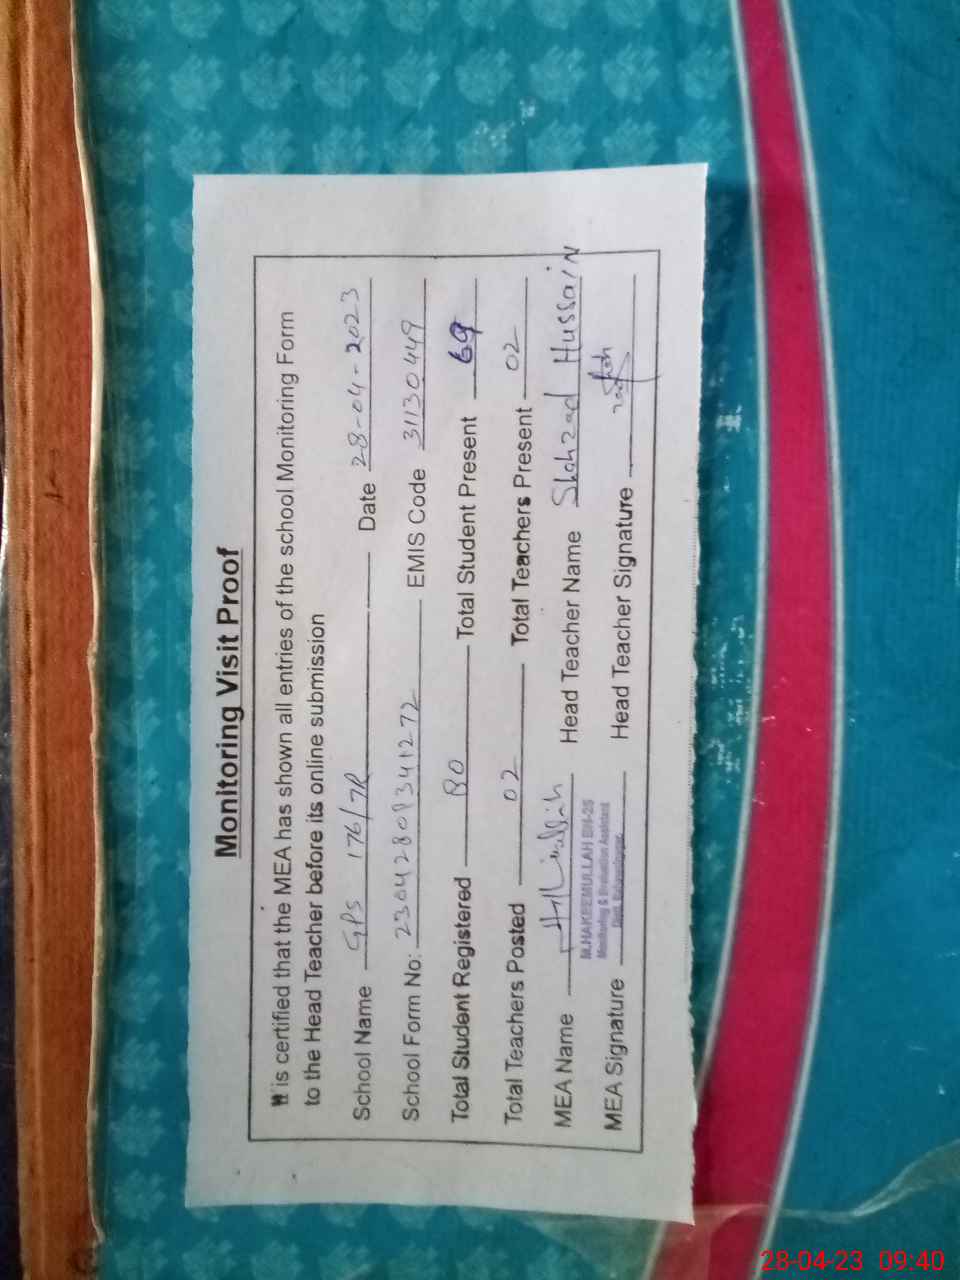 Monitoring Visit Proof
It is certified that the MEA has shown all entries of the school Monitoring Form
to the Head Teacher before its online submission
School Name GPS 176/7R Date 28-04-2023
School Form No: 23042809341272 EMIS Code 31130449
Total Student Registered 80 Total Student Present 69
Total Teachers Posted 02 Total Teachers Present 02
MEA Name Head Teacher Name Shahzad Hussain
M.HAKEEMULLAH
Monitoring & Evaluation Assistant
MEA Signature Head Teacher Signature
28-04-23 09:40